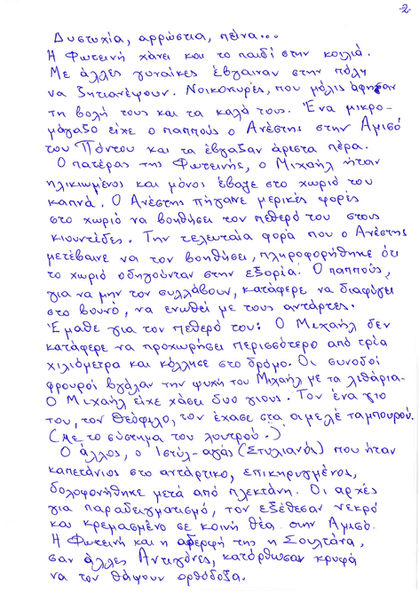 -2-
Δυστυχία, αρρώστια, πείνα...
Η Φωτεινή χάνει και το παιδί στην κοιλιά.
Με άλλες γυναίκες έβγαιναν στην πόλη
να ζητιανέψουν. Νοικοκυρές, που μόλις άφησαν
τη βολή τους και τα καλά τους. Ένα μικρο-
μάγαζο είχε ο παππούς ο Ανέστης στην Αμισό
του Πόντου και τα έβγαζαν άριστα πέρα.
Ο πατέρας της Φωτεινής, ο Μιχαήλ ήταν
ηλικιωμένος και μόνος έβαζε στο χωριό του
καπνά. Ο Ανέστης πήγαινε μερικές φορές
στο χωριό να βοηθήσει τον πεθερό του στους
κιουντέδες. Την τελευταία φορά που ο Ανέστης
μετέβαινε να τον βοηθήσει, πληροφορήθηκε ότι
το χωριό οδηγούνταν στην εξορία. Ο παππούς,
για να μην τον συλλάβουν, κατάφερε να διαφύγει
στο βουνό, να ενωθεί με τους αντάρτες.
Έμαθε για τον πεθερό του: Ο Μιχαήλ δεν
κατάφερε να προχωρήσει περισσότερο από τρία
χιλιόμετρα και κόλλησε στο δρόμο. Οι συνοδοί
φρουροί βγάλαν την ψυχή του Μιχαήλ με τα λιθάρια.
Ο Μιχαήλ είχε χάσει δυο γιους. Τον ένα γιο
του, τον Θεόφιλο, τον έχασε στα αμελέ ταμπουρού.
(με το σύστημα του λουτρού.)
Ο άλλος, ο Ιστύλ-αγάς (Στυλιανός) που ήταν
καπετάνιος στο αντάρτικο, επικηρυγμένος,
δολοφονήθηκε μετά από πλεκτάνη. Οι αρχές
για παραδειγματισμό, τον εξέθεσαν νεκρό
και κρεμασμένο σε κοινή θέα στην Αμισό.
Η Φωτεινή και η αδερφή της η Σουλτάνα,
σαν άλλες Αντιγόνες, κατόρθωσαν κρυφά
να τον θάψουν ορθόδοξα.